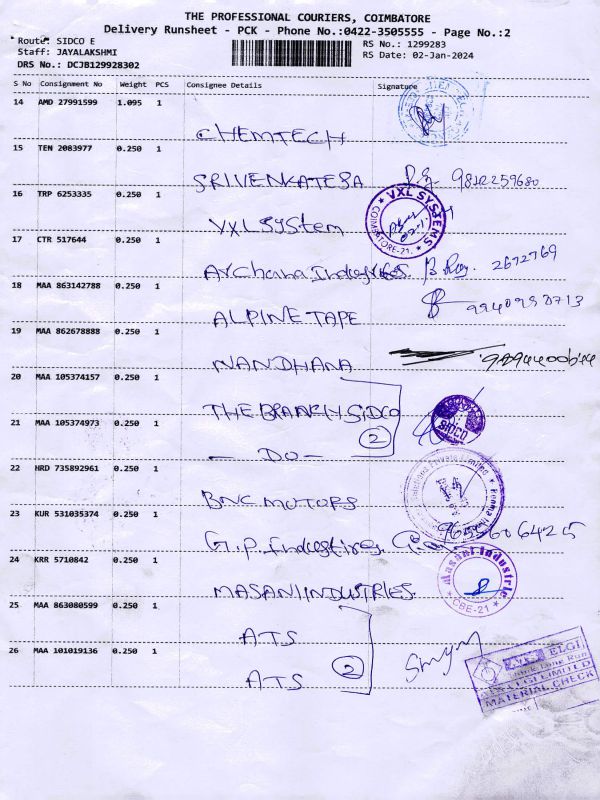 THE PROFESSIONAL COURIERS, COIMBATORE
Delivery Runsheet - PCK - Phone No.:0422-3505555 - Page No.:2
Route: SIDCO E
RS No.: 1299283
Staff: JAYALAKSHMI
RS Date: 02-Jan-2024
DRS No.: DCJB129928302
S No Consignment No Weight PCS Consignee Details Signature
14 AMD 27991599 1.095 1
CHEMTECH
15 TEN 2083977 0.250 1
SRIVENKATESA
16 TRP 6253335 0.250 1
VXL SYStem
VXL SYSTEMS
COIMBATORE-21.
17 CTR 517644 0.250 1
Archana Industries. 2672769
18 MAA 863142788 0.250 1
ALPINE TAPE
19 MAA 862678888 0.250 1
NANDHANA
20 MAA 105374157 0.250 1
THE BRANCH SIDCO
SIDCO
21 MAA 105374973 0.250 1
2
- DO -
22 HRD 735892961 0.250 1
BNC MOTORS
Solutions Private Limited
23 KUR 531035374 0.250 1
G.P. Industires. 9655606425
24 KRR 5710842 0.250 1
MASANI INDUSTRIES.
Masani Industrie
CBE-21
25 MAA 863080599 0.250 1
ATS
26 MAA 101019136 0.250 1
2
ATS
ELGI
LIMITED
MATERIAL CHECK